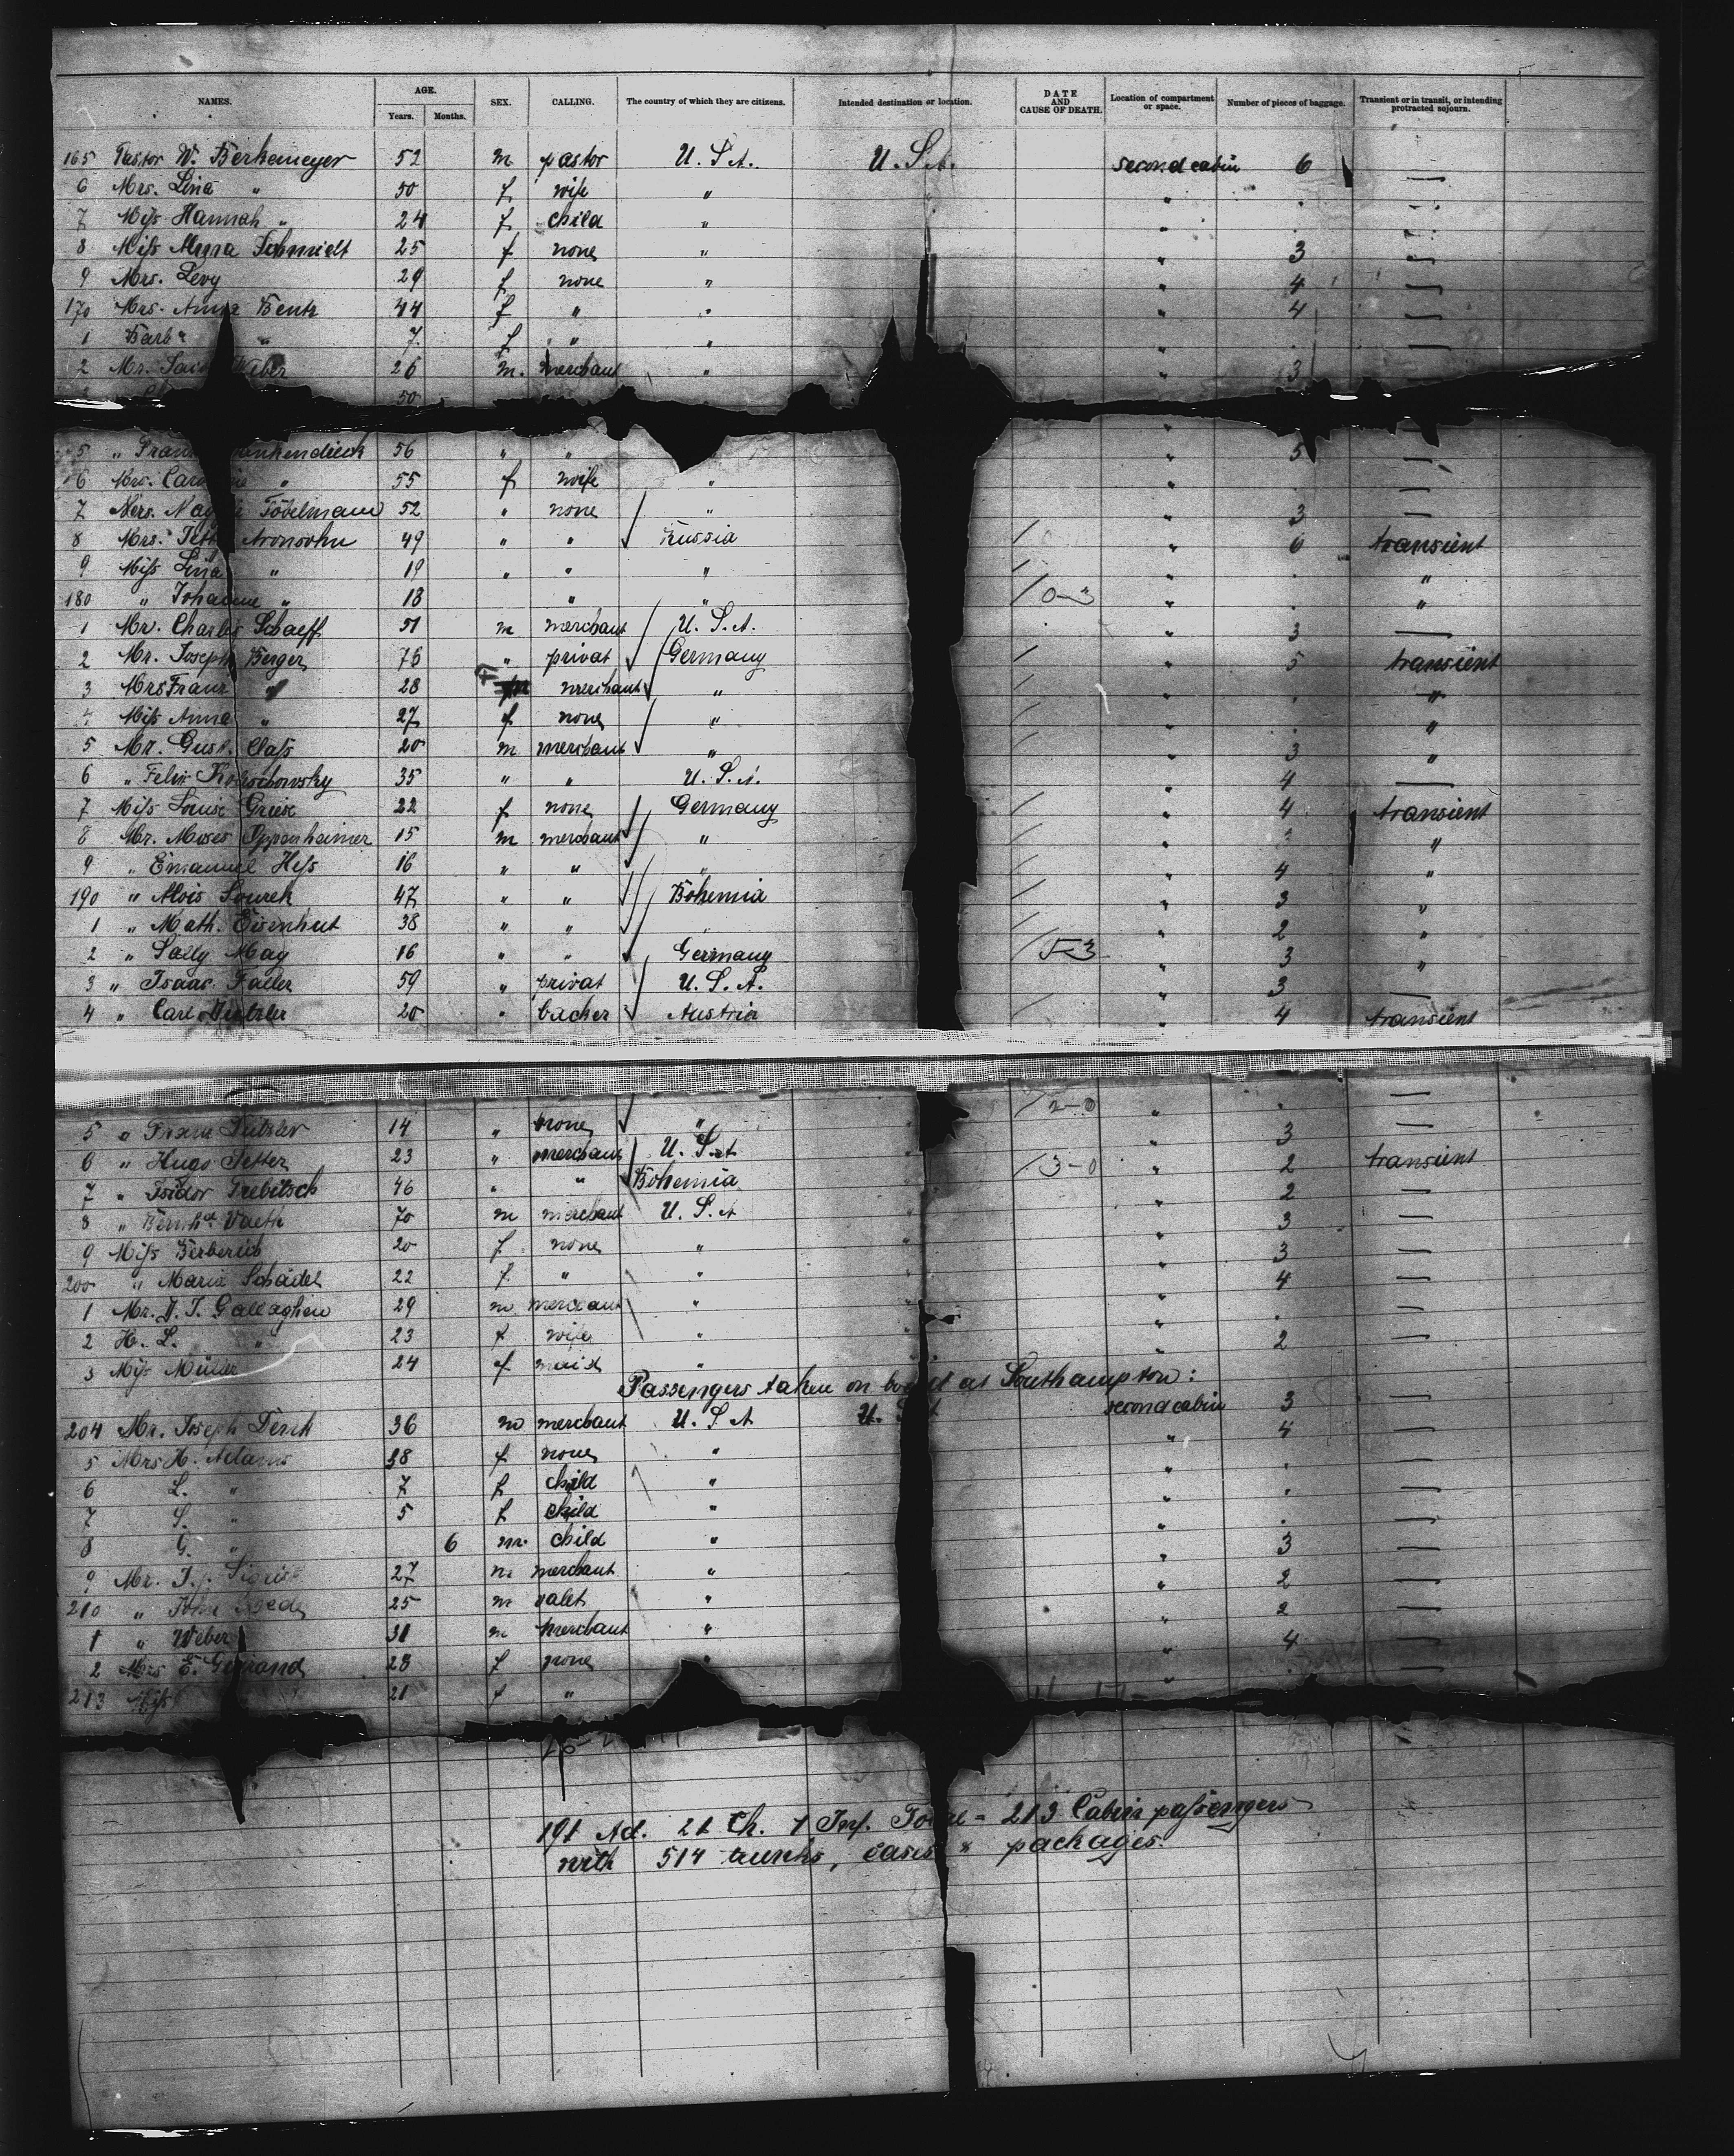 NAMES. AGE. SEX. CALLING. The country of which they are citizens. Intended destination or location. DATE AND CAUSE OF DEATH. Location of compartment or space. Number of pieces of baggage. Transient or in transit, or intending protracted sojourn.
Years. Months.
165 Pastor W. Berkemeyer 52 m pastor U. S. A. U. S. A. second cabin 6 —
6 Mrs. Lina " 50 f wife " " . —
7 Miss Hannah " 24 f child " " . —
8 Miss Anna Schmidt 25 f none " " 3 —
9 Mrs. Levy 29 f none " " 4 —
170 Mrs. Anna Bentz 44 f " " " 4 —
1 " 7 f " " " . —
2 Mr. Weber 26 m. merchant " " 3
50
5 " 56 " " " 5 —
6 Mrs. " 55 f wife " " . —
7 Mrs. Tövelmann 52 " none " " 3 —
8 Mrs. Aronsohn 49 " " Russia " 6 transient
9 Miss Lina " 19 " " " " . "
180 " Johanne " 18 " " 0-3 " . "
1 Mr. Charles Schaeff 51 m merchant U. S. A. " 3 —
2 Mr. Joseph Berger 76 " privat Germany " 5 transient
3 Mrs Franz " 28 f merchant " " . "
4 Miss Anna " 27 f none " " . "
5 Mr. Gust. Class 20 m merchant " " 3 "
6 " Felix 35 " " U. S. A. " 4 —
7 Miss Louise Griese 22 f none Germany " 4 transient
8 Mr. Moses Oppenheimer 15 m merchant " " 3 "
9 " Emanuel Hess 16 " " " " 4 "
190 " Alois Sourek 47 " " Bohemia " 3 "
1 " Math. Eisenhut 38 " " " " 2 "
2 " Sally May 16 " " Germany 5-3 " 3 "
3 " Isaac Faller 59 " privat U. S. A. " 3 —
4 " Carl 20 " bacher Austria " 4 transient
5 " Franz 14 " none " 2-0 " . —
6 " Hugo Setter 23 " merchant U. S. A. " 3 —
7 " Isidor Trebitsch 46 " " Bohemia 3-0 " 2 transient
8 " Bernhd. Vaeth 70 m merchant U. S. A " 2 —
9 Miss 20 f none " " 3 —
200 " Maria Schädel 22 f " " " 3 —
1 Mr. D. J. Gallaghen 29 m merchant " " 4 —
2 H. L. " 23 f wife " " . —
3 Miss Müller 24 f maid " " 2 —
Passengers taken on board at Southampton:
204 Mr. Joseph Derrk 36 m merchant U. S. A U. S. A second cabin 3 —
5 Mrs H. Adams 38 f none " " 4 —
6 L. " 7 f child " " . —
7 S. " 5 f child " " . —
8 G. " 6 m. child " " . —
9 Mr. J. J. 27 m merchant " " 3 —
210 " John 25 m valet " " 2 —
1 " Weber 31 m merchant " " 2 —
2 Mrs E. 28 f none " " 4 —
213 Miss 21 f " " . —
191 Ad. 21 Ch. 1 Inf. Total = 213 Cabin passengers
with 514 trunks, cases & packages.